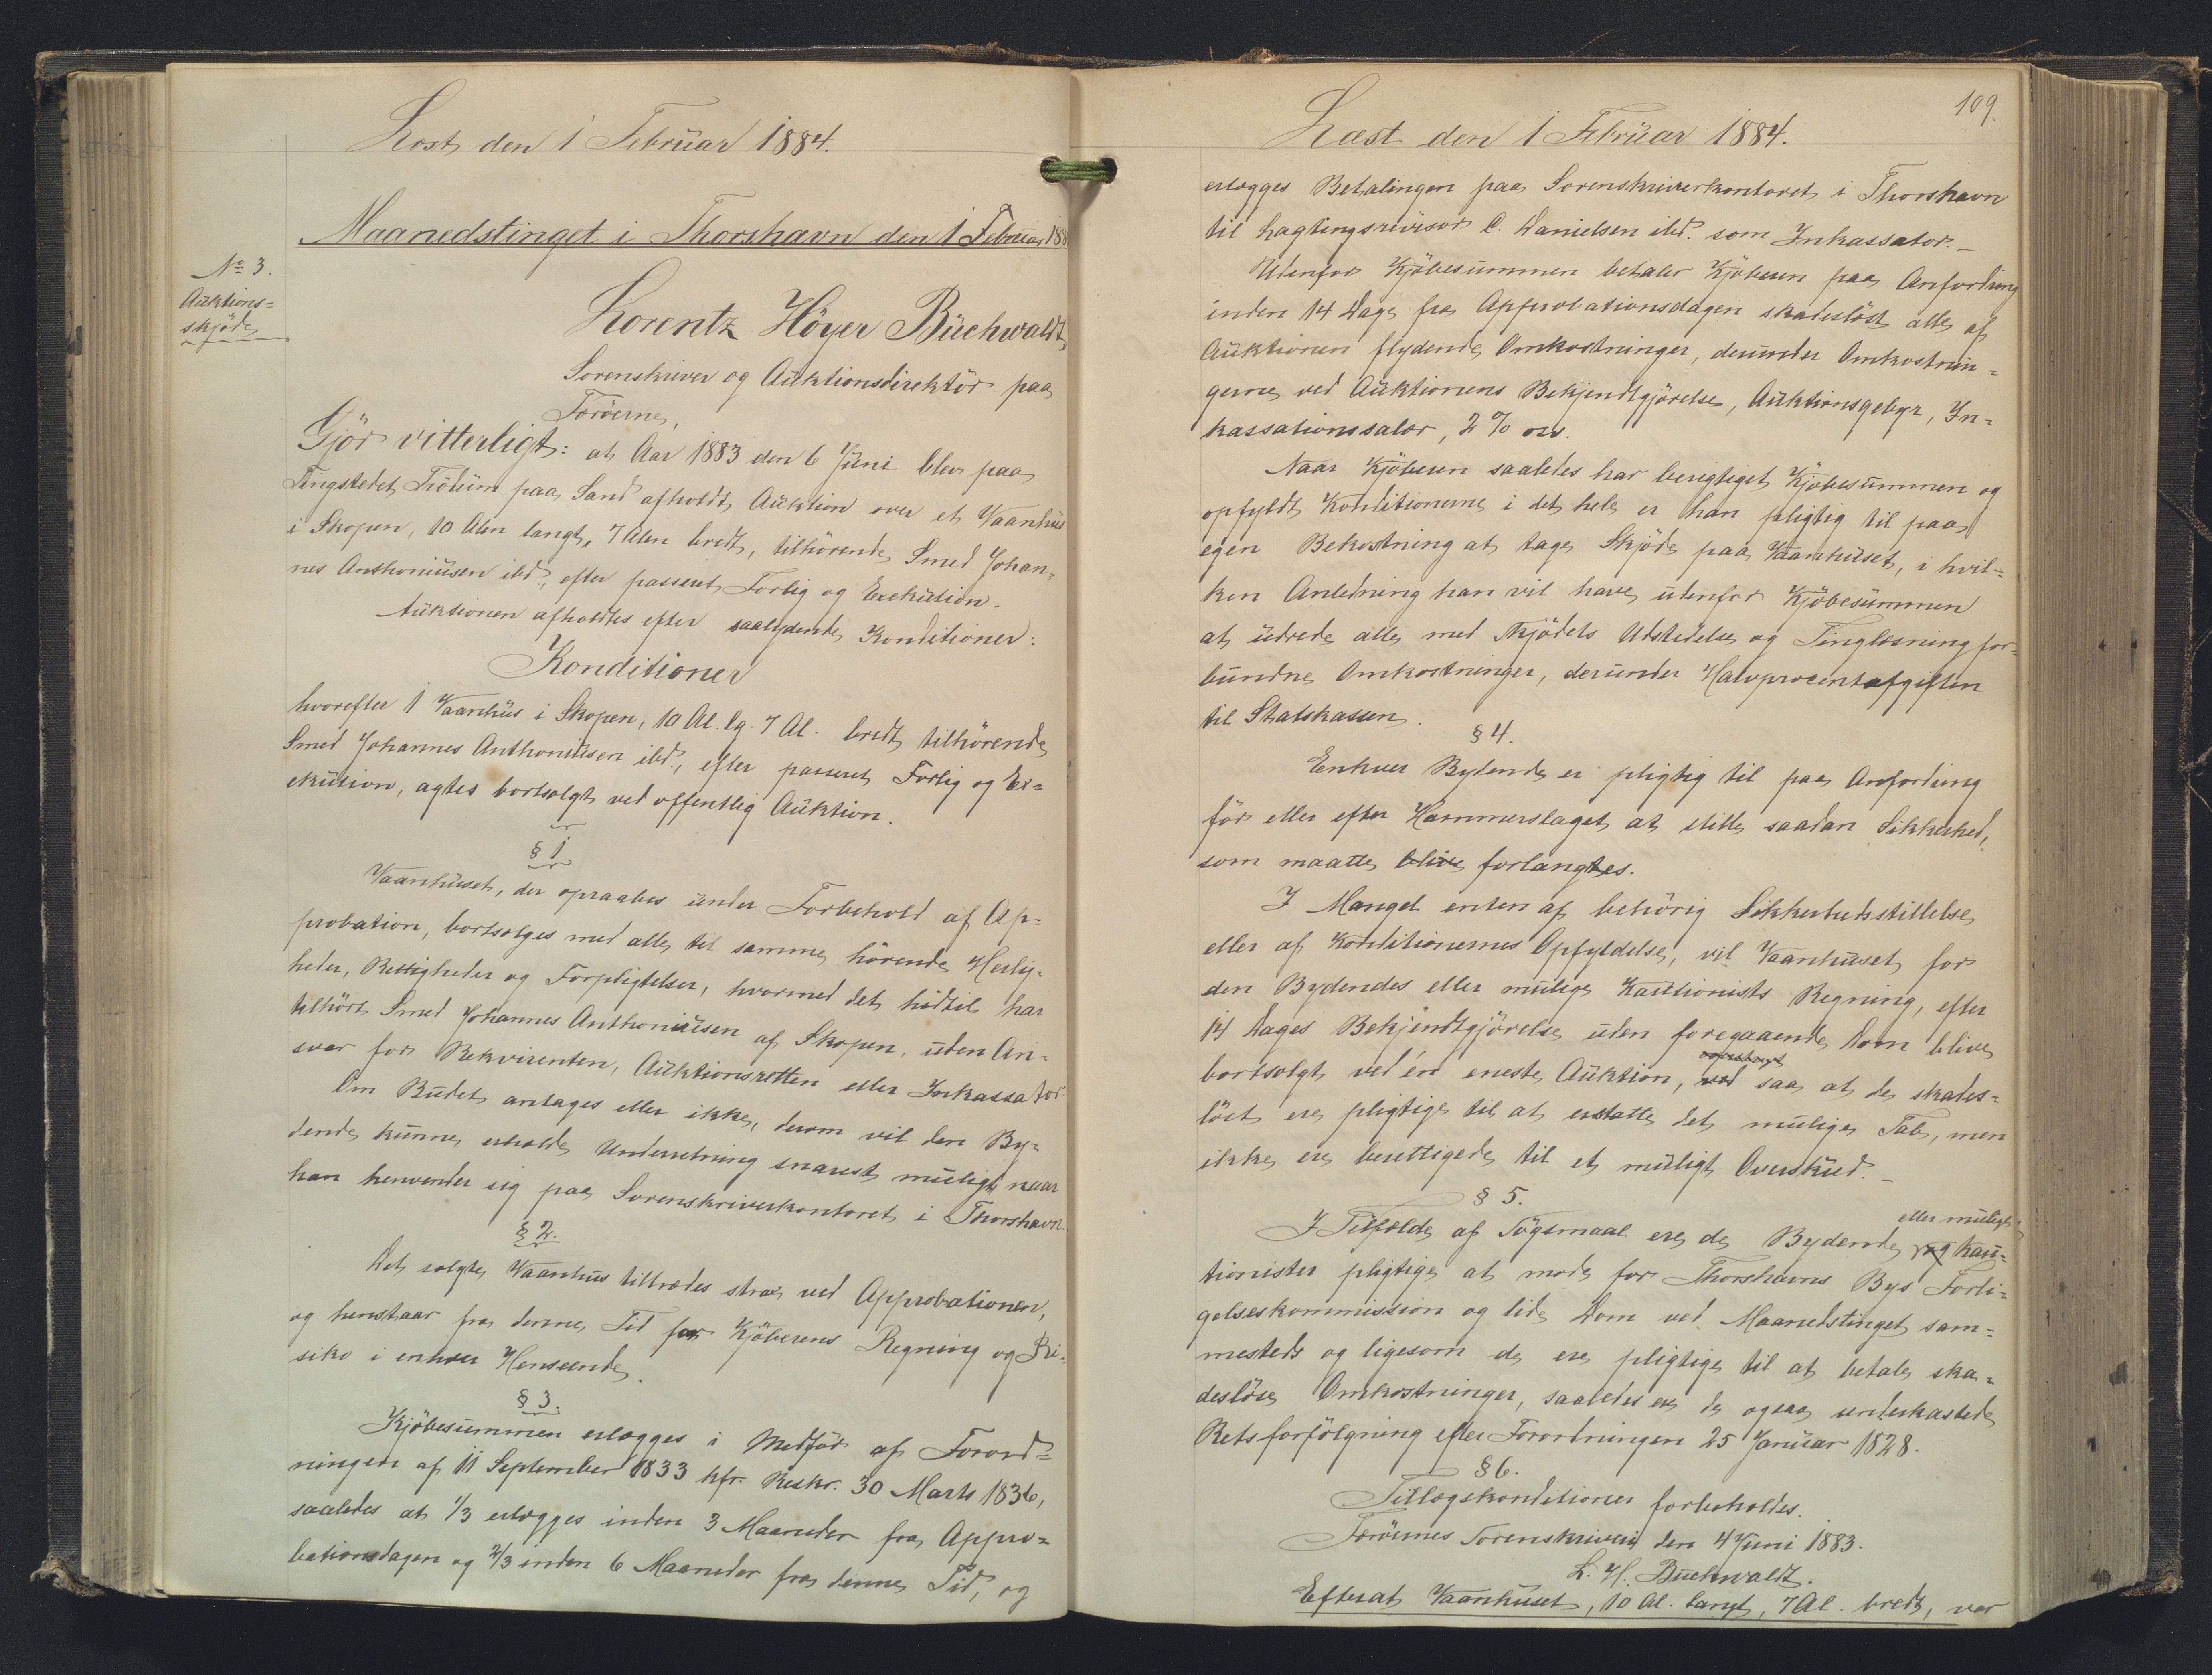 Læst den 1 Februar 1884.
Maanedstinget i Thorshavn den 1 Februar 188
No 3.
Auktions=
skjöde
Lorentz Höyer Buchwaldt,
Sorenskriver og Auktionsdirektör paa
Færöerne,
Gjör vitterligt: at Aar 1883 den 6 Juni blev paa
Tingstedet Tröðum paa Sand afholdt Auktion over et Vaanhus
i Skopen, 10 Alen langt, 7 Alen bredt, tilhörende Smed Johan=
nes Anthoniussen ibd., efter passeret Forlig og Exekution.
Auktionen afholdtes efter saalydende Konditioner:
Konditioner
hvorefter 1 Vaanhus i Skopen, 10 Al. lg. 7 Al. bredt tilhörende
Smed Johannes Anthoniusen ibd., efter passeret Forlig og Ex=
ekution, agtes bortsolgt ved offentlig Auktion.
§ 1
Vaanhuset, der opraabes under Forbehold af Ap=
probation, bortsælges med alle til samme hörende Herlig=
heder, Rettigheder og Forpligtelser, hvormed det hidtil har
tilhört Smed Johannes Anthoniusen af Skopen, uden An=
svar for Rekvirenten, Auktionsretten eller Inkassator.
Om Budet antages eller ikke, derom vil den By=
dende kunne erholde Underretning snarest muligt naar
han henvender sig paa Sorenskriverkontoret i Thorshavn.
§ 2.
Det solgte Vaanhus tiltrædes strax ved Approbationen,
og henstaar fra denne Tid for Kjöberens Regning og Ri=
siko i enhver Henseende.
§ 3.
Kjöbesummen erlægges i Medför af Forord=
ningen af 11 September 1833 kfr. Reskr. 30 Marts 1836,
saaledes at 1/3 erlægges inden 3 Maaneder fra Appro=
bationsdagen og 2/3 inden 6 Maaneder fra denne Tid, og
109.
Læst den 1 Februar 1884.
erlægges Betalingen paa Sorenskriverkontoret i Thorshavn
til Lagtingsrevisor C. Danielsen ibd. som Inkassator.-
Udenfor Kjöbesummen betaler Kjöberen paa Anfordring
inden 14 Dage fra Approbationsdagen skadeslöst alle af
Auktionen flydende Omkostninger, derunder Omkostnin=
gerne ved Auktionens Bekjendtgjörelse, Auktionsgebyr, In=
kassationssalær, 2 % osv.
Naar Kjöberen saaledes har berigtiget Kjöbesummen og
opfyldt Konditionerne i det hele er han pligtig til paa
egen Bekostning at tage Skjöde paa Vaanhuset, i hvil=
ken Anledning han vil have udenfor Kjöbesummen
at udrede alle med Skjödets Udstedelse og Tinglæsning for=
bundne Omkostninger, derunder Halvprocentafgiften
til Statskassen.
§ 4.
Enhver Bydende er pligtig til paa Anfordring
för eller efter Hammerslaget at stille saadan Sikkerhed,
som maatte blive forlangtes.
I Mangel enten af behörig Sikkerhedsstillelse
eller af Konditionernes Opfyldelse, vil Vaanhuset for
den Bydendes eller mulige Kautionists Regning, efter
14 Dages Bekjendtgjörelse uden foregaaende Dom blive
bortsolgt ved én eneste Auktion, ved saa at de skades=
löst ere pligtige til at erstatte det mulige Tab, men
ikke ere berettigede til et muligt Overskud.-
§ 5.
I Tilfælde af Sögsmaal ere de Bydende og eller mulige Kau=
tionister pligtige at möde for Thorshavns Bys Forli=
gelseskommission og lide Dom ved Maanedstinget sam=
mesteds og ligesom de ere pligtige til at betale ska=
deslöse Omkostninger, saaledes ere de ogsaa underkastede
Retsforfölgning efter Forordningen 25 Januar 1828.
§ 6.
Tillægskonditioner forbeholdes.
Færöernes Sorenskriveri den 4 Juni 1883.
L. H. Buchwaldt.
Efterat Vaanhuset, 10 Al. langt, 7 Al. bredt, var